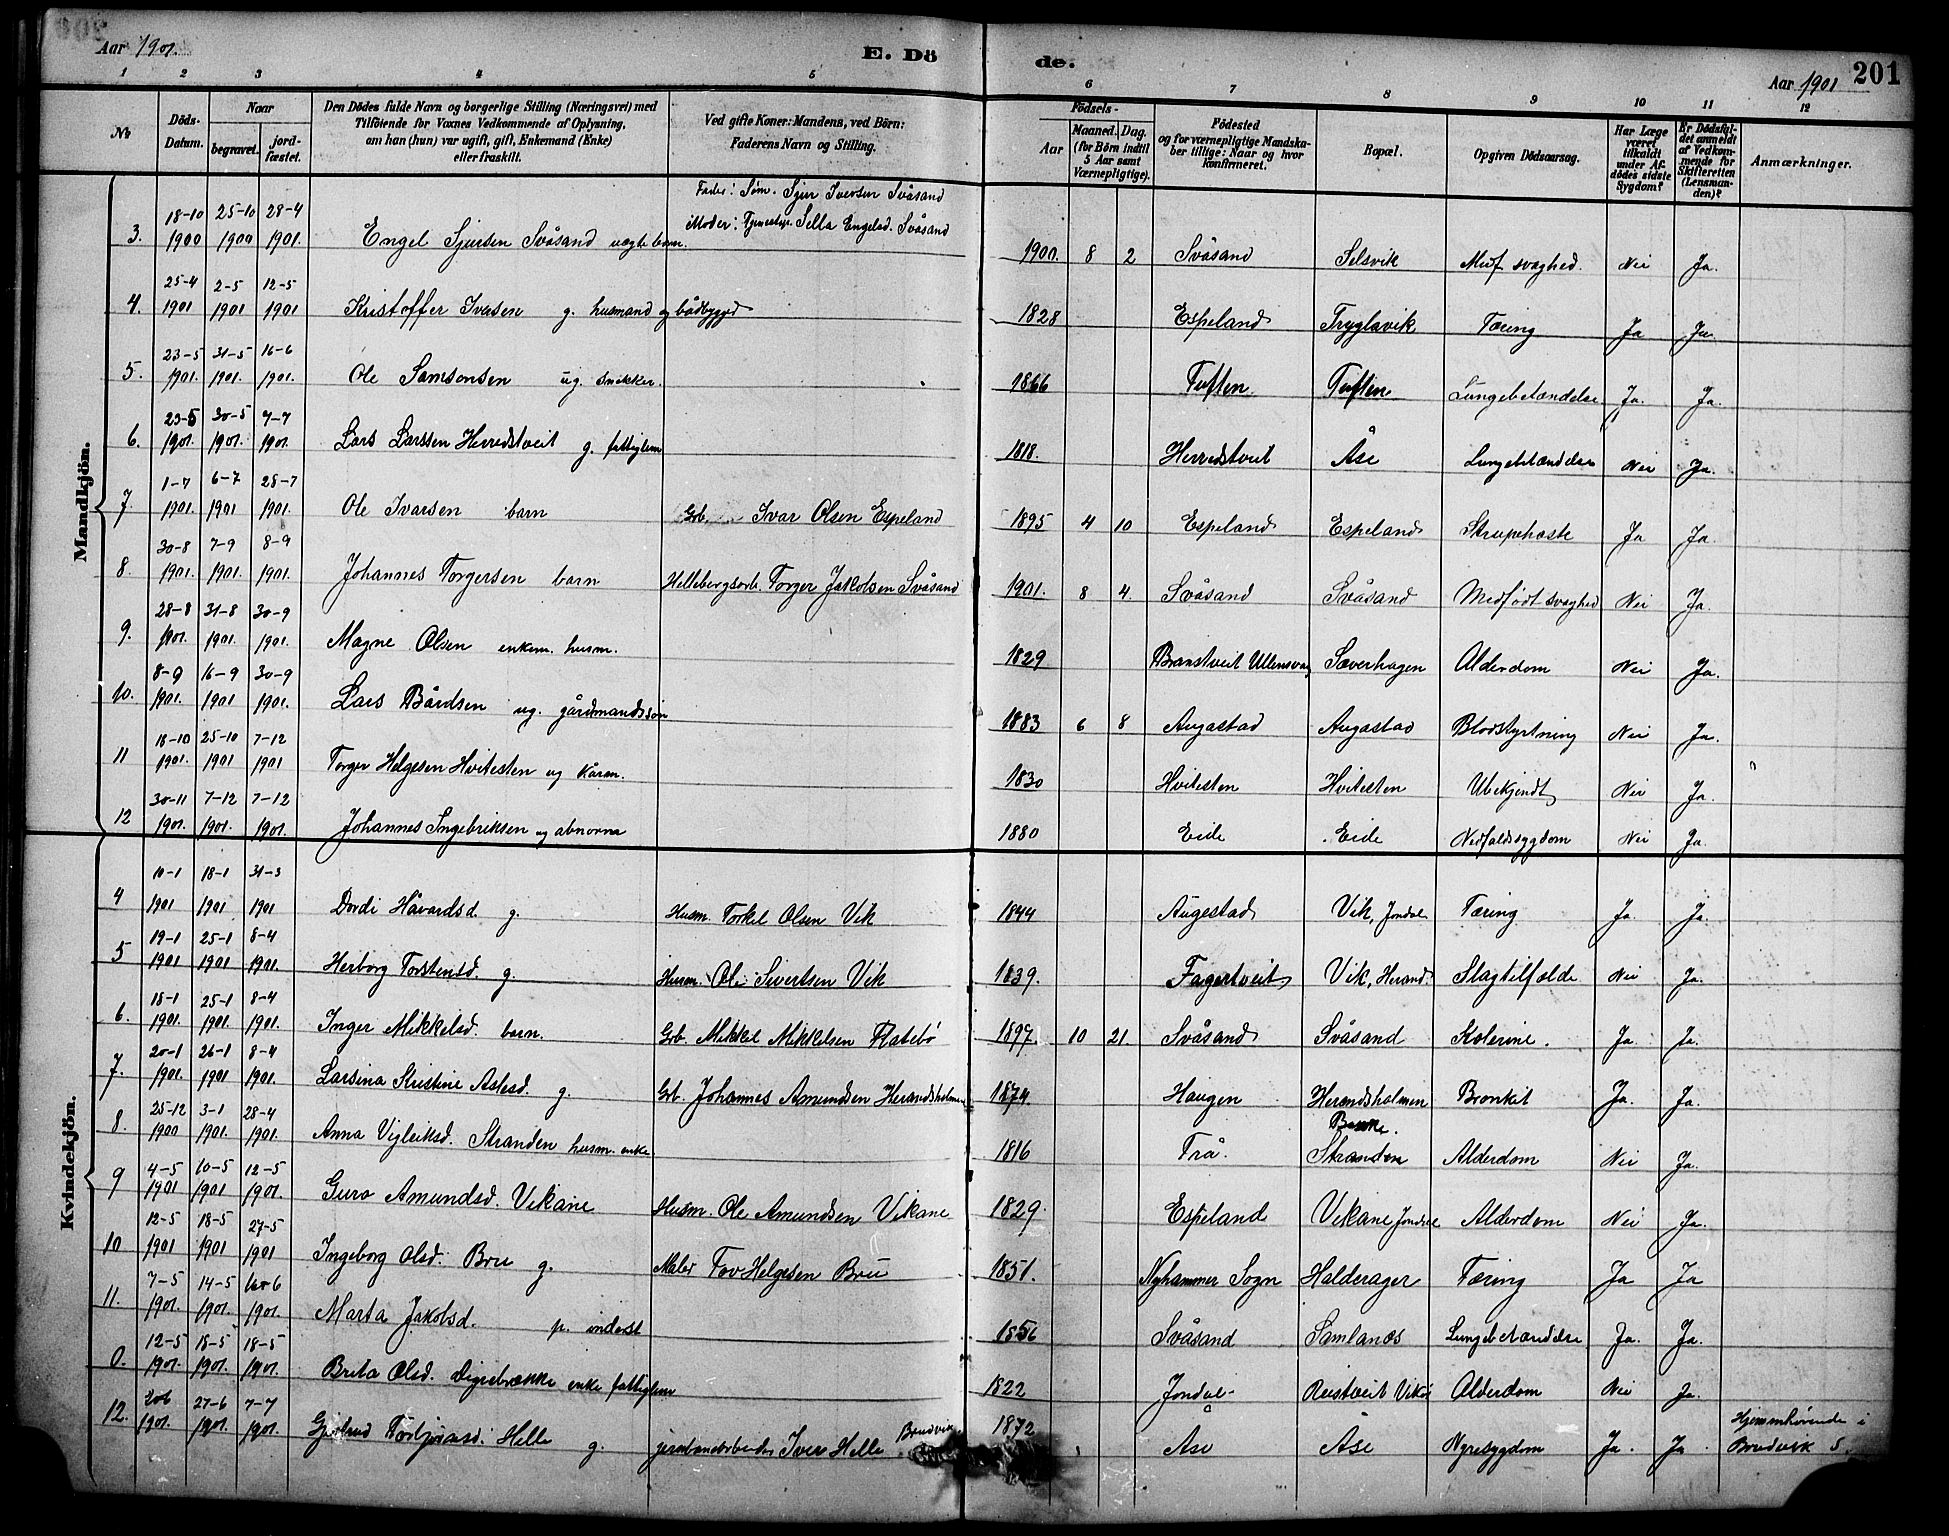 Aar 1901.
E. Dö
de.
Aar 1901
201
1 2 3 4 5 6 7 8 9 10 11 12
No
Döds-Datum.
Naar
begravet.
jord-fæstet.
Den Dödes fulde Navn og borgerlige Stilling (Næringsvei) med
Tilföiende for Voxnes Vedkommende af Oplysning,
om han (hun) var ugift, gift, Enkemand (Enke)
eller fraskilt.
Ved gifte Koner: Mandens, ved Börn:
Faderens Navn og Stilling.
Födsels-
Aar
Maaned. Dag.
(for Börn indtil
5 Aar samt
Værnepligtige).
Födested
og for værnepligtige Mandska-
ber tillige: Naar og hvor
konfirmeret.
Bopæl.
Opgiven Dödsaarsag.
Har Læge
været
tilkaldt
under Af-
dödes sidste
Sygdom?
Er Dödsfal-
det anmeldt
af Vedkom-
mende for
Skifteretten
(Lensman-
den)?
Anmærkninger.
Mandkjön.
3. 18-10 1900 25-10 1900 28-4 1901. Engel Sjursen Svåsand uægte barn. Fader: Søm. Sjur Iversen Svåsand Moder: Sella Engelsd. Svåsand 1900. 8 2 Svåsand Selsvik Medf. svaghed. Nei Ja.
4. 25-4 1901 2-5 1901 12-5 1901 Kristoffer Iversen g. husmand og bådbygger 1828 Espeland Tryglavik Tæring Ja Ja.
5. 23-5 1901. 31-5 1901. 16-6 1901. Ole Samsonsen ug. snikker. 1866 Tuften Tuften Lungebetændelse Ja. Ja.
6. 23-5 1901. 30-5 1901. 7-7 1901. Lars Larssen Herredstveit g. fattiglem 1818. Herredstveit Åse Lungebetændelse Nei Ja.
7. 1-7 1901. 6-7 1901 28-7 1901. Ole Ivarsen barn Grb. Ivar Olsen Espeland 1895 4 10 Espeland Espeland Strupehoste Ja Ja.
8. 30-8 1901. 7-9 1901. 8-9 1901. Johannes Torgersen barn Hellebergsarb. Torger Jakobsen Svåsand 1901. 8 4. Svåsand Svåsand Medfødt svaghed Nei Ja.
9. 28-8 1901. 31-8 1901. 30-9 1901. Magne Olsen enkem. husm. 1829 Branstveit Ullensvang Sæverhagen Alderdom Nei Ja.
10. 8-9 1901. 16-9 1901 30-9 1901. Lars Bårdsen ug. gårdmandssøn 1883 6 8 Augastad Augastad Blodstyrtning Nei Ja.
11 18-10 1901. 25-10 1901 7-12 1901 Torger Helgesen Hvitesten ug kårm. 1830 Hvitesten Hvitesten Ubekjendt Nei Ja.
12 30-11 1901. 7-12 1901. 7-12 1901. Johannes Ingebriksen ug abnorm 1880 Eide Eide Nedfaldssygdom Nei Ja.
Kvindekjön.
4 10-1 1901 18-1 1901 31-3 1901 Dordi Håvardsd. g. Husm. Torkel Olsen Vik 1844 Augestad Vik, Jondal Tæring Ja Ja.
5 19-1 1901 25-1 1901 8-4 1901. Herborg Torstensd. g. Husm. Ole Sivertsen Vik 1839. Fagertveit Vik, Herand. Slagtilfælde Nei Ja.
6. 18-1 1901. 25-1 1901. 8-4 1901. Inger Mikkelsd. barn. Grb. Mikkel Mikkelsen Flatebø 1897. 10 21 Svåsand Svåsand Kolerine. Ja. Ja.
7. 20-1 1901. 26-1 1901 8-4 1901. Larsina Kristine Aslesd. g Grb. Johannes Amundsen Herandsholmen 1874. Haugen Herandsholmen Bronkit Ja. Ja.
8. 25-12 1900 3-1 1901. 28-4 1901. Anna Vigleiksd. Stranden husm. enke 1816 Trå. Stranden Alderdom Nei Ja.
9 4-5 1901 10-5 1901 12-5 1901. Guro Amundsd. Vikane Husm. Ole Amundsen Vikane 1829. Espeland Vikane Jondal Alderdom Nei Ja.
10 12-5 1901 18-5 1901 27-5 1901 Ingeborg Olsd. Bru g. Maler Tov Helgesen Bru 1851. Nyhammer Sogn Halderager Tæring Ja Ja
11. 7-5 1901. 14-5 1901. 1901. Marta Jakobsd. inderst 1856 Svåsand Samlanes Lungebetændelse Ja. Ja.
0. 12-5 1901. 18-5 1901. 18-5 1901. Brita Olsd. Digrebrække enke fattiglem 1822 Jondal Alderdom Nei Ja.
12. 20-6 1901. 27-6 1901. 7-7 1901. Gjertrud Helle g. jernbanearbeider Iver Helle Brudvik 1872 Åse Åse Nyresygdom Ja. Ja Hjemmehørende i Brudvik S.